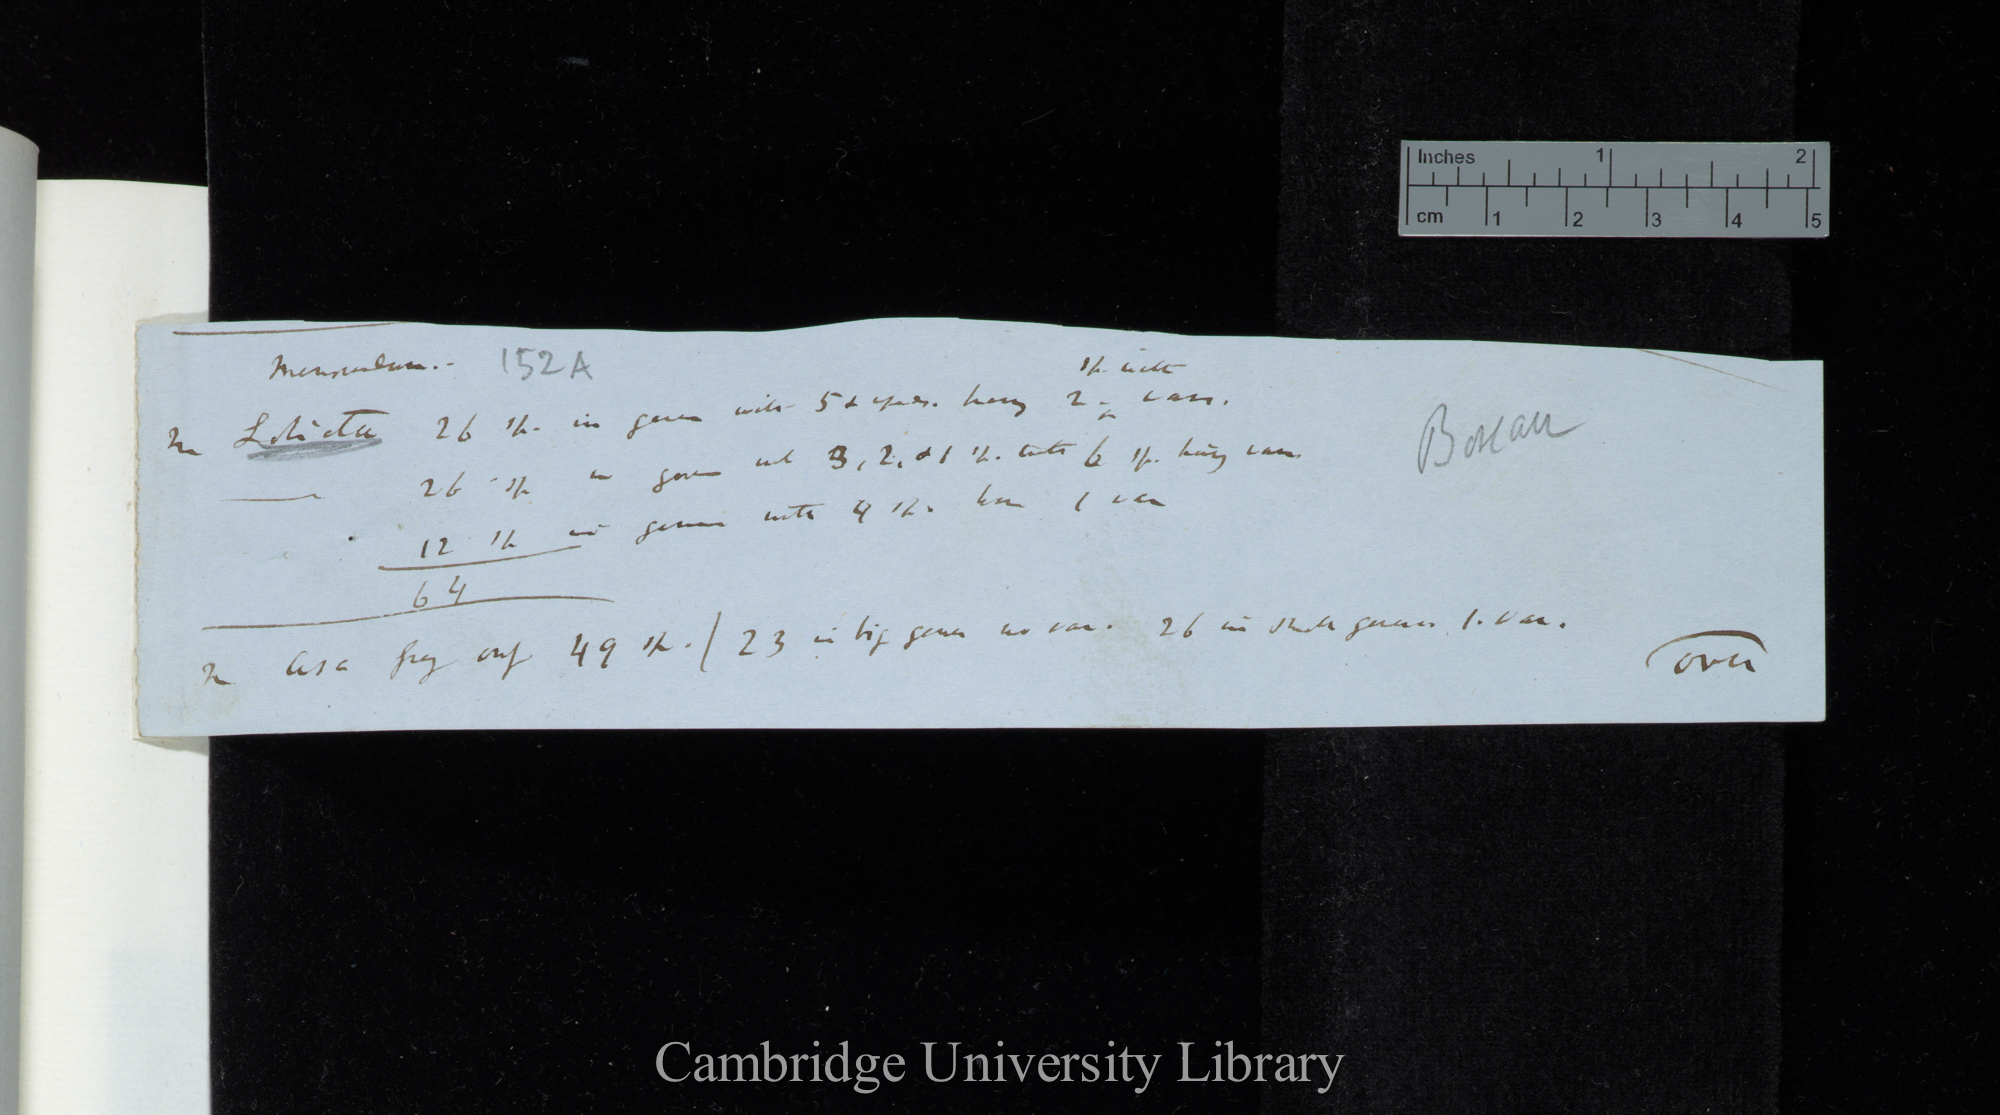 Inches 1 2
cm 1 2 3 4 5
Memorandum.- 152A
sp. with
In Labiatæ 26 sp. in genera with 5 & upwds. having 2 ^ vars.
Boreau
26 sp in genera with 3, 2, & 1 sp. with 6 sp. having vars.
12 sp in genera with 4 sp. have 1 var
64
In Asa Gray only 49 sp. / 23 in big genera no var. 26 in small genera 1. var.
over
Cambridge University Library